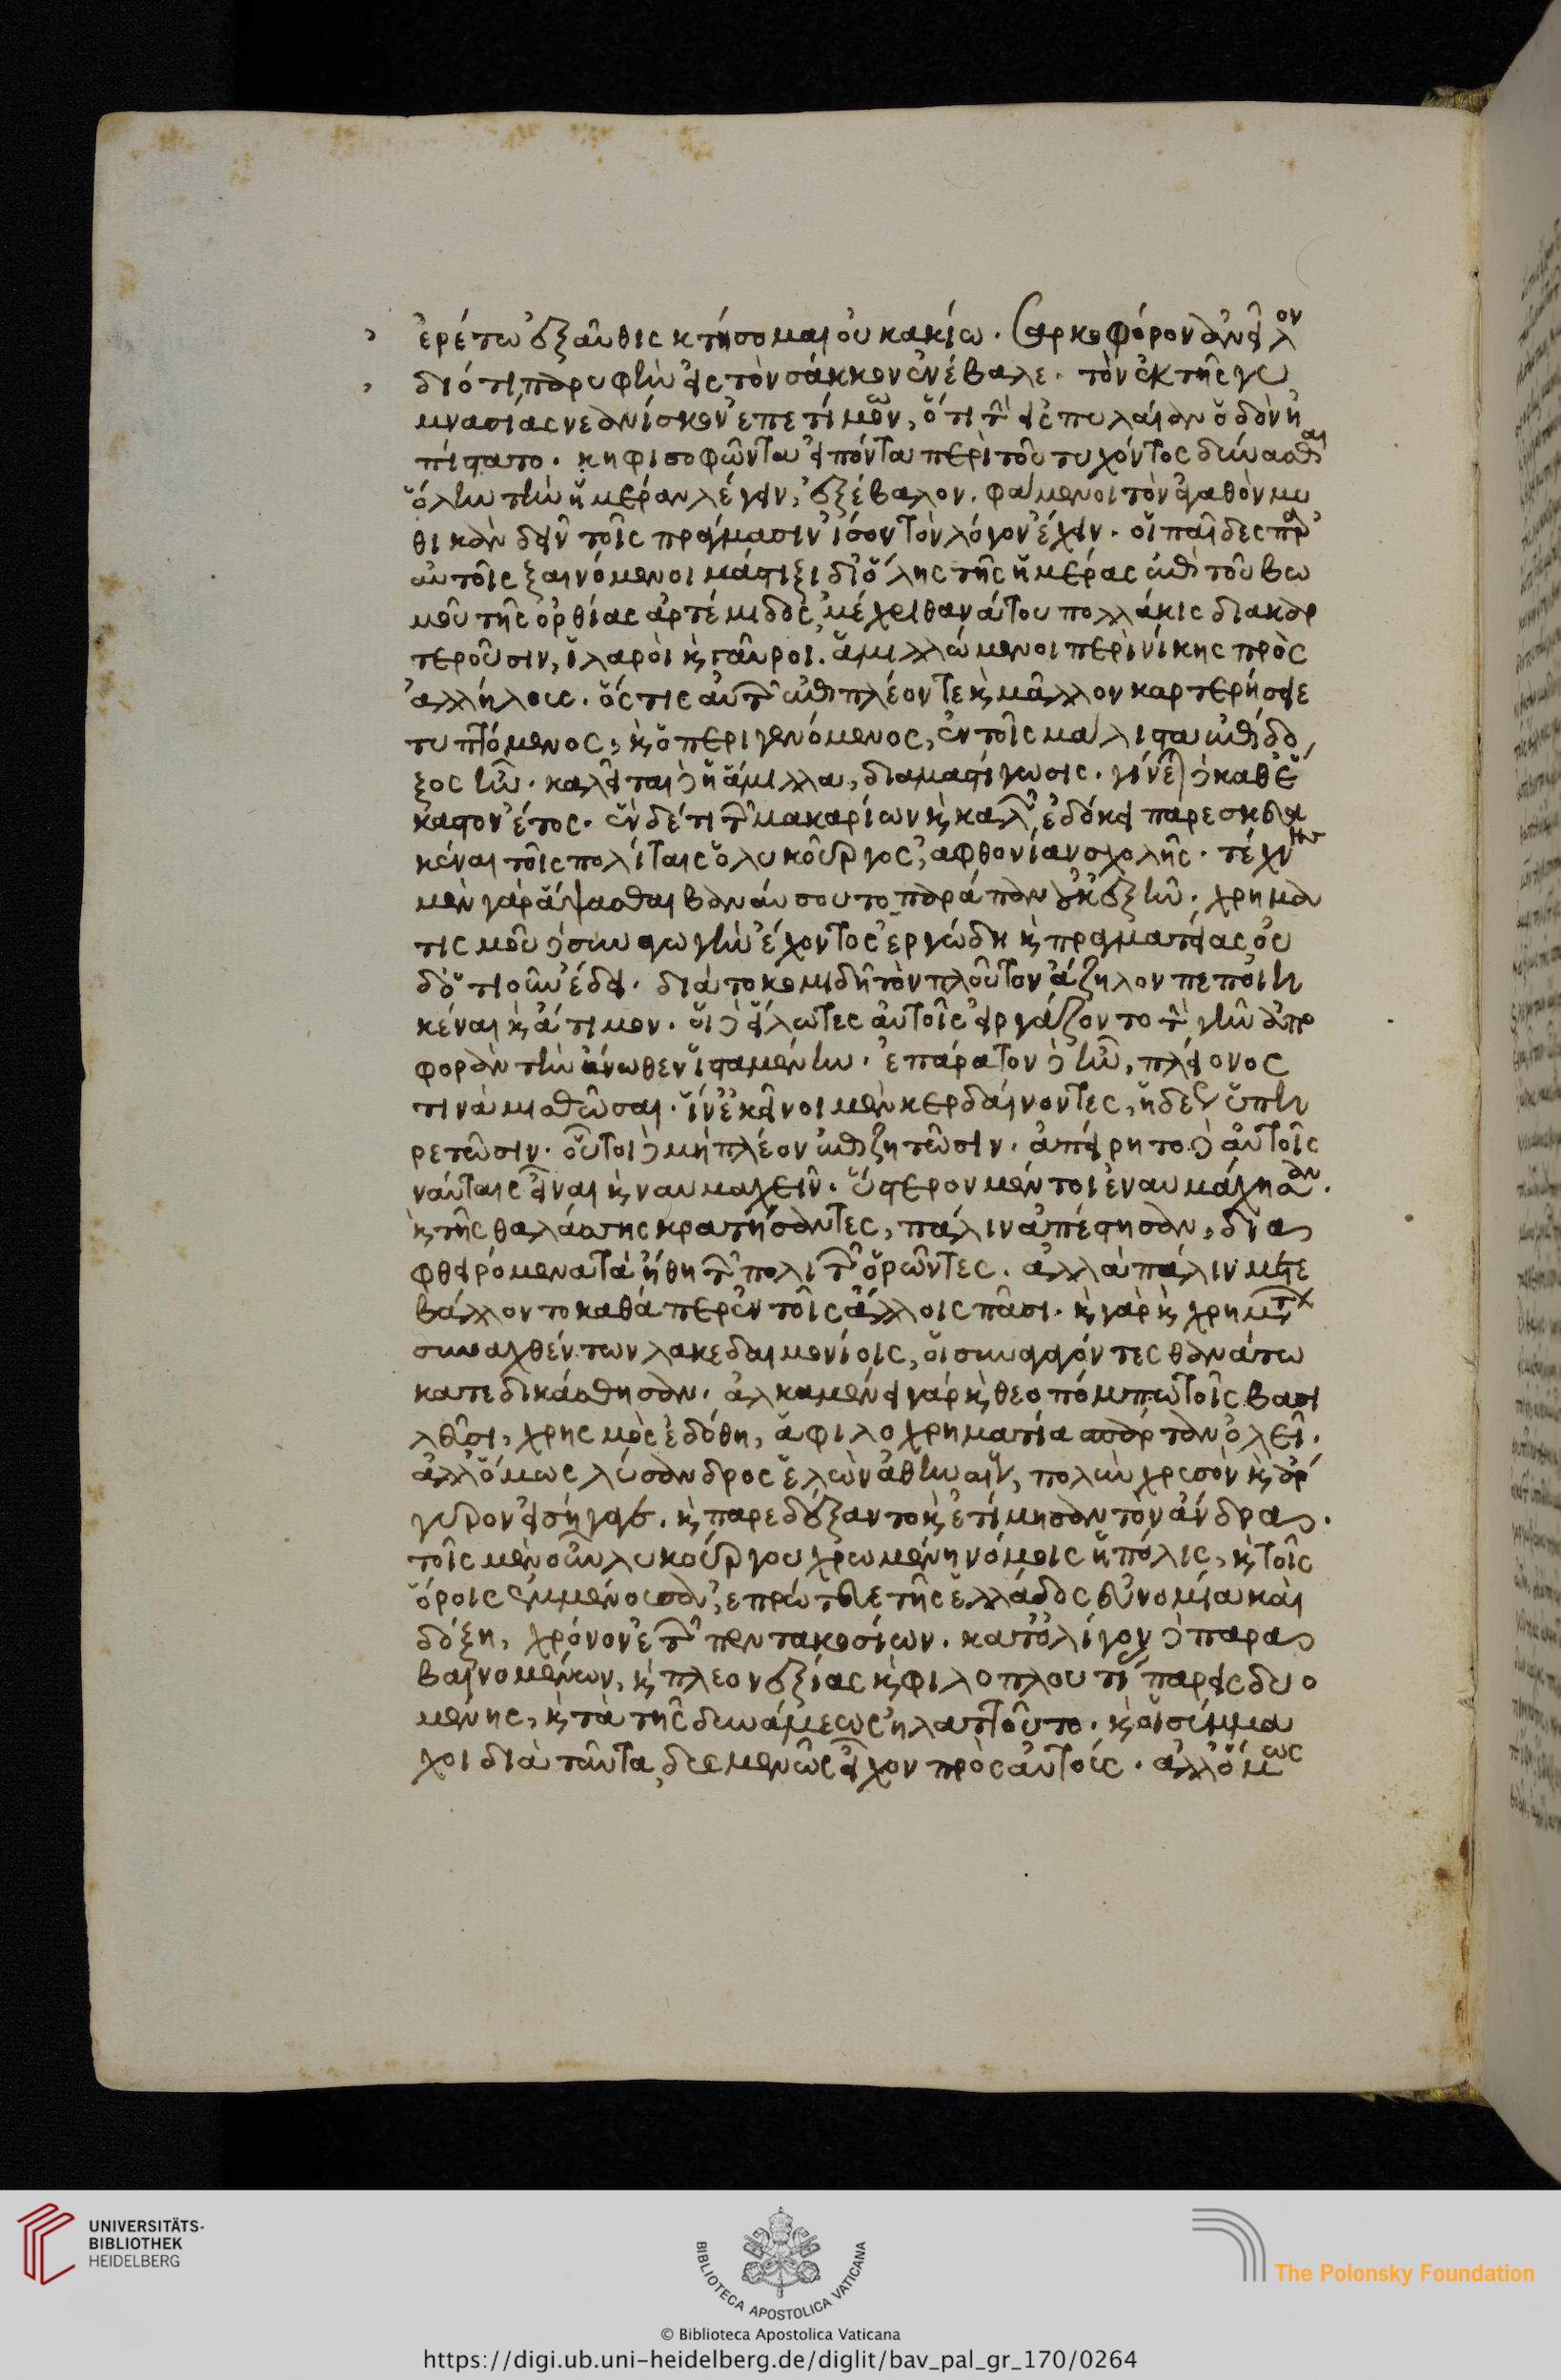 ἐρέτω ἐξαῦθις κτήσομαι οὐ κακίω. Σαρκοφόρον ἀνεῖλον
διότι παρυφὴν εἰς τὸν σάκκον ἐνέβαλε. τὸν ἐκ τῆς γυ
μνασίας νεανίσκον ἐπετίμων, ὅτι τὴν εἰς πυλαίαν ὁδὸν ἠ
πίστατο. κηφισοφῶντα εἰπόντα περὶ τοῦ τυχόντος δύνασθαι
ὅλην τὴν ἡμέραν λέγειν, ἐξέβαλον. φάμενοι τὸν ἀγαθὸν μυ
θικὰν δεῖν τοῖς πράγμασιν ἴσον τὸν λόγον ἔχειν. οἱ παῖδες παρ'
αὐτοῖς ξαινόμενοι μάστιξι δι' ὅλης τῆς ἡμέρας ἐπὶ τοῦ βω
μοῦ τῆς ὀρθίας ἀρτέμιδος, μέχρι θανάτου πολλάκις διακαρ
τεροῦσιν, ἱλαροὶ καὶ γαῦροι. ἁμιλλώμενοι περὶ νίκης πρὸς
ἀλλήλους. ὅς τις αὐτῶν ἐπιπλέον τε καὶ μᾶλλον καρτερήσειε
τυπτόμενος, καὶ ὁ περιγενόμενος, ἐν τοῖς μάλιστα ἐπίδο
ξος ἦν. καλεῖται δὲ ἡ ἅμιλλα, διαμαστίγωσις. γίνεται δὲ καθ' ἕ
καστον ἔτος. ἓν δέ τι τῶν μακαρίων καὶ καλῶν ἐδόκει παρεσκευα
κέναι τοῖς πολίταις ὁ λυκοῦργος, ἀφθονίαν σχολῆς. τέχνης
μὲν γὰρ ἅψασθαι βαναύσου τοπαράπαν οὐκ ἐξῆν. χρημα
τισμοῦ δὲ συναγωγὴν ἔχοντος ἐργώδη καὶ πραγματείας οὐ
δ' ὁτιοῦν ἔδει. διὰ τὸ κομιδῇ τὸν πλοῦτον ἄζηλον πεποιη
κέναι καὶ ἄτιμον. οἱ δὲ εἵλωτες αὐτοῖς εἰργάζοντο τὴν γῆν ἀπο
φορὰν τὴν ἄνωθεν ἱσταμένην. ἐπάρατον δὲ ἦν, πλείονος
τινὰ μισθῶσαι. ἵν' ἐκεῖνοι μὲν κερδαίνοντες, ἡδέως ὑπη
ρετῶσιν. οὗτοι δὲ μὴ πλέον ἐπιζητῶσιν. ἀπείρητο δὲ αὐτοῖς
ναύταις εἶναι καὶ ναυμαχεῖν. ὕστερον μέντοι ἐναυμάχησαν.
καὶ τῆς θαλάσσης κρατήσαντες, πάλιν ἀπέστησαν, δια
φθειρόμενα τὰ ἤθη τῶν πολιτῶν ὁρῶντες. ἀλλὰ πάλιν μετε
βάλλοντο καθάπερ ἐν τοῖς ἄλλοις πᾶσι. καὶ γὰρ καὶ χρημάτων
συναχθέντων λακεδαιμονίοις, οἱ συναγαγόντες θανάτω
κατεδικάσθησαν. ἀλκαμένει γὰρ καὶ θεοπόμπω τοῖς βασι
λεῦσι, χρησμὸς ἐδόθη, ἁ φιλοχρηματία σπάρταν ὀλεῖ.
ἀλλ' ὅμως λύσανδρος ἑλὼν ἀθήνας, πολὺν χρυσὸν καὶ ἄρ
γυρον εἰσήγαγε. καὶ παρεδέξαντο καὶ ἐτίμησαν τὸν ἄνδρα
τοῖς μὲν οὖν λυκούργου χρωμένη νόμοις ἡ πόλις, καὶ τοῖς
ὅροις ἐμμένουσα, ἐπρώτευε τῆς ἑλλάδος εὐνομία καὶ
δόξη, χρόνον ἐτῶν πεντακοσίων. κατ' ὀλίγον δὲ παρα
βαινομένων, καὶ πλεονεξίας καὶ φιλοπλουτίας παρεισδυο
μένης, καὶ τὰ τῆς δυνάμεως ἠλαττοῦτο. καὶ οἱ σύμμα
χοι διὰ ταῦτα δυσμενῶς εἶχον πρὸς αὐτούς. ἀλλ' ὅμως
UNIVERSITÄTS-
BIBLIOTHEK
HEIDELBERG
BIBLIOTECA APOSTOLICA VATICANA
The Polonsky Foundation
© Biblioteca Apostolica Vaticana
https://digi.ub.uni-heidelberg.de/diglit/bav_pal_gr_170/0264